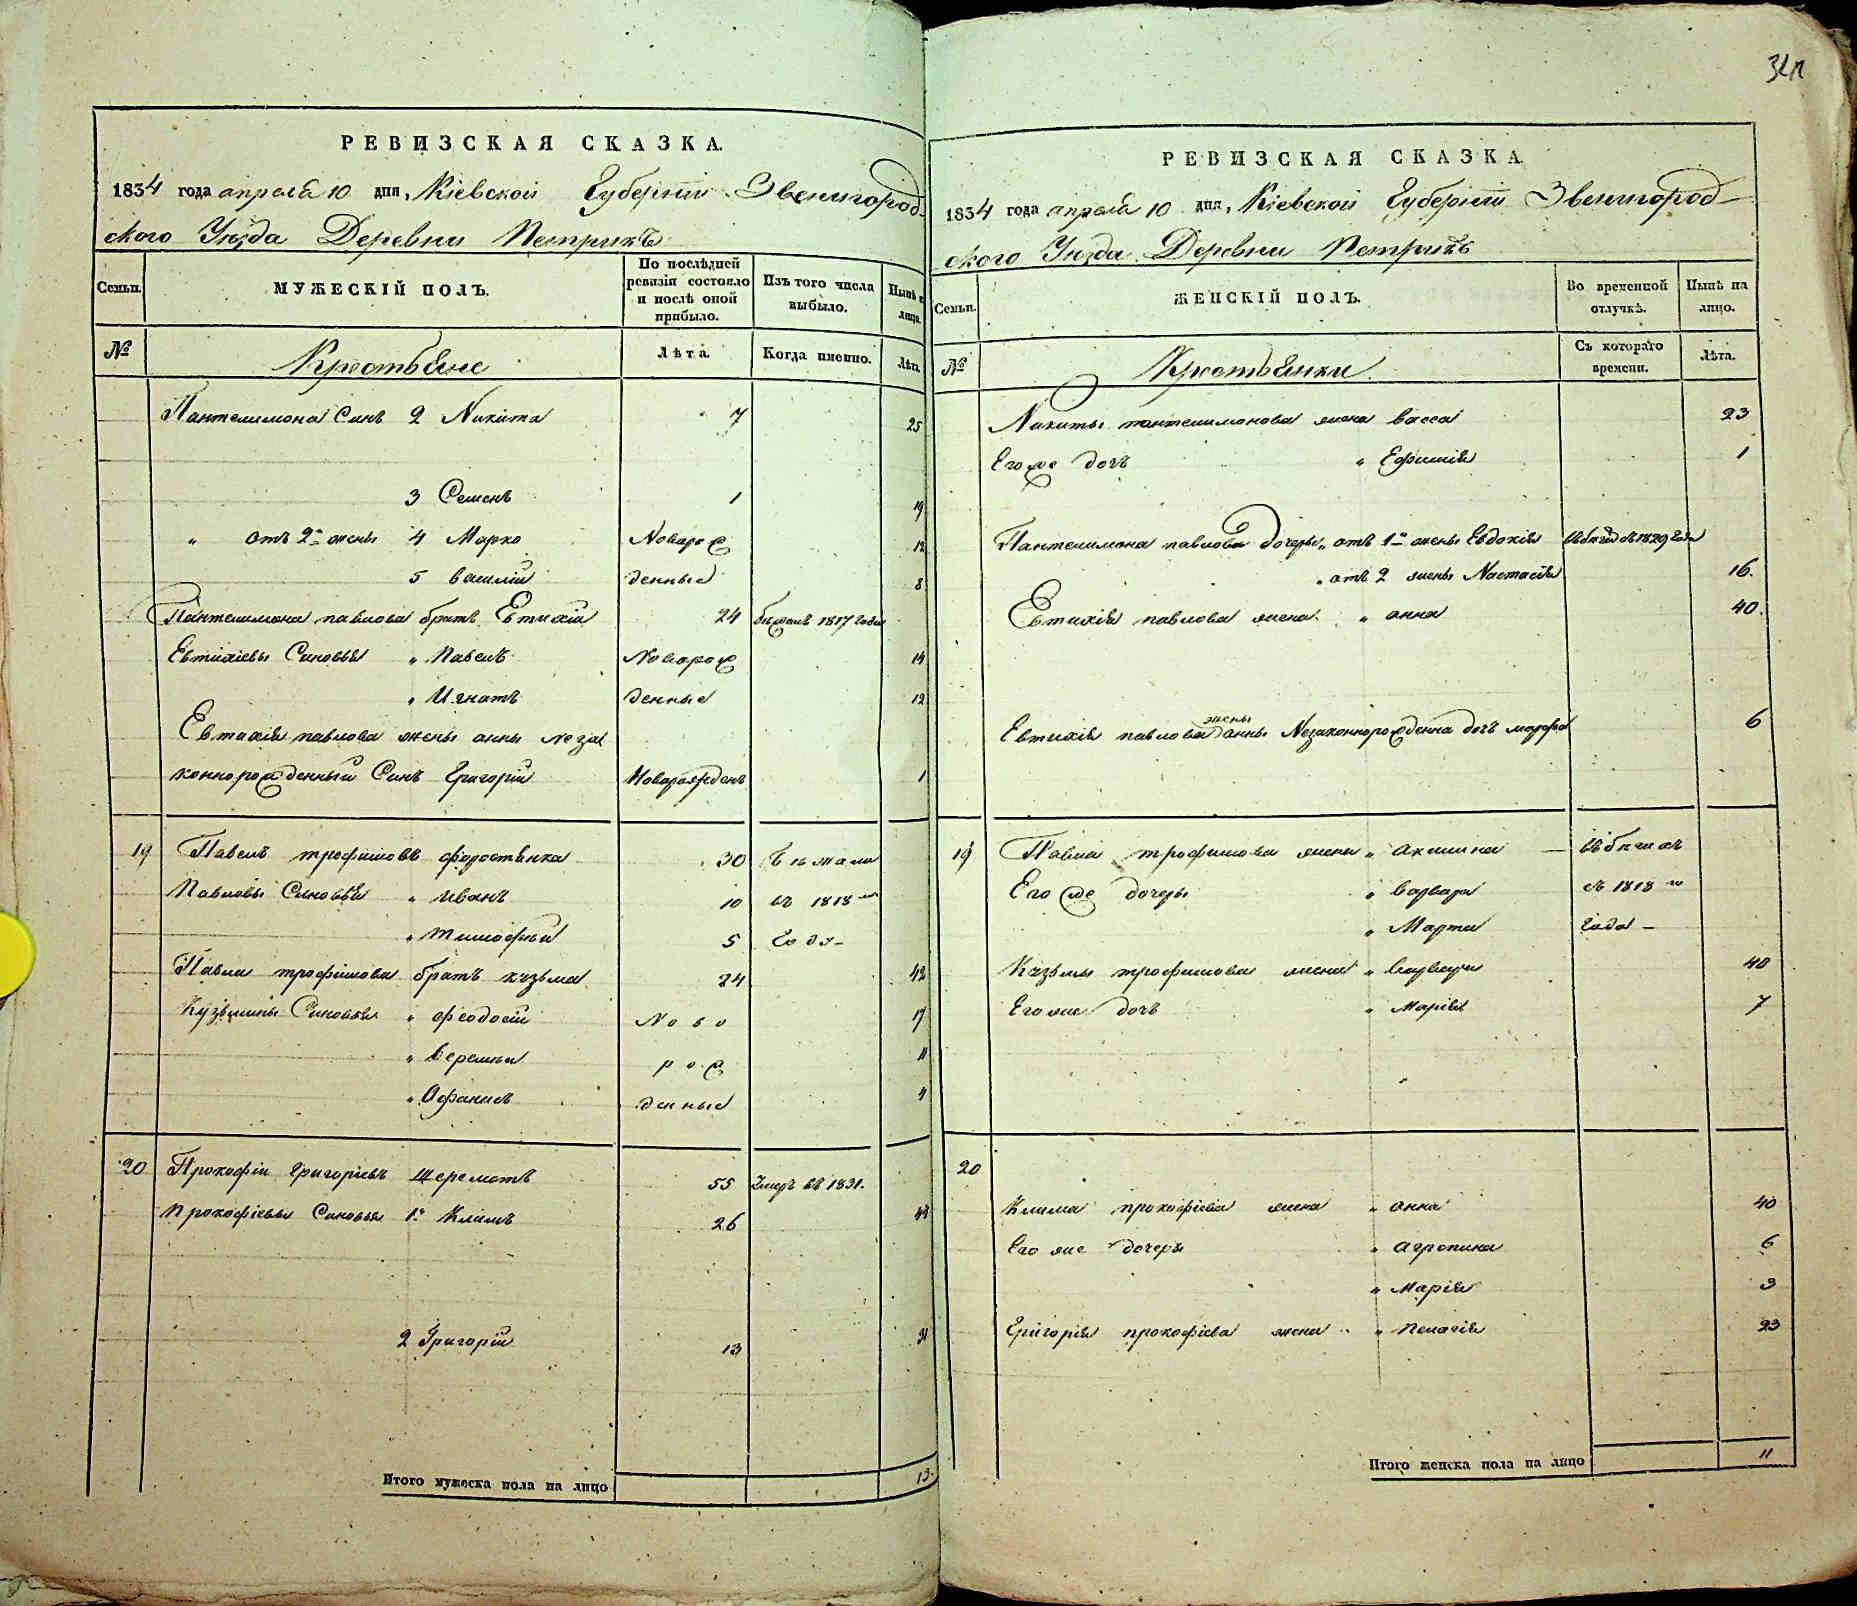 РЕВИЗСКАЯ СКАЗКА.
1834 года апреля 10 дня, Кіевской Губерніи Звенигород-
ского Уезда Деревни Петрикъ
Семьи.
МУЖЕСКІЙ ПОЛЪ.
По послѣдней ревизіи состояло и послѣ оной прибыло.
Изъ того числа выбыло.
Нынѣ на лицо.
№
Крестьяне
Лѣта.
Когда именно.
Лѣта.
Пантелимона Синъ 2 Никита 7 25
3 Семенъ 1 19
" отъ 2й жены 4 Марко Новорож 12
5 василій денные 8
Пантелимона павлова братъ Евтихій 24 бежалъ 1817 года
Евтихіевы Синовья " Павелъ Новорож 14
" Игнатъ денные 12
Евтихія павлова жены анны незак
коннорожденный Синъ Григорій Новорожденъ 1
19 Павелъ трофимовъ форостянка 30 Бежали
Павловы Синовья " иванъ 10 въ 1818м
" тимофей 5 году
Павла трофимова братъ кузьма 24 42
Кузьмины Синовья " феодосій Ново 17
" Веремей рож 11
" Афанасъ денные 4
20 Прокофій Григоріевъ Шереметъ 55 Умеръ въ 1831.
Прокофіевы Синовья 1й Климъ 26 44
2 Григорій 13 31
Итого мужеска пола на лицо 13.
РЕВИЗСКАЯ СКАЗКА.
1834 года апреля 10 дня, Кіевской Губерніи Звенигород-
ского Уезда Деревни Петрикъ
Семьи.
ЖЕНСКІЙ ПОЛЪ.
Во временной отлучкѣ.
Нынѣ на лицо.
№
Крестьянки
Съ котораго времени.
Лѣта.
Никиты пантелимонова жена васса 23
Его же дочъ " Ефимія 1
Пантелимона павлова дочеры " отъ 1й жены Евдокія съ 1829 года
" отъ 2 жены Настасія 16.
Евтихія павлова жена " анна 40.
Евтихія павлова жены анны Незаконнорожденна дочъ марфа 6
19 Павла трофимова жена " акилина въ бегахъ
Его же дочеры " варвара съ 1818го
" Марта года
Кузьмы трофимова жена " варвара 40
Его же дочъ " Марія 7
20
Клима прокофіева жена " анна 40
Его же дочеры " агропина 6
" Марія 3
Григорія прокофіева жена " пелагія 23
Итого женска пола на лицо 11